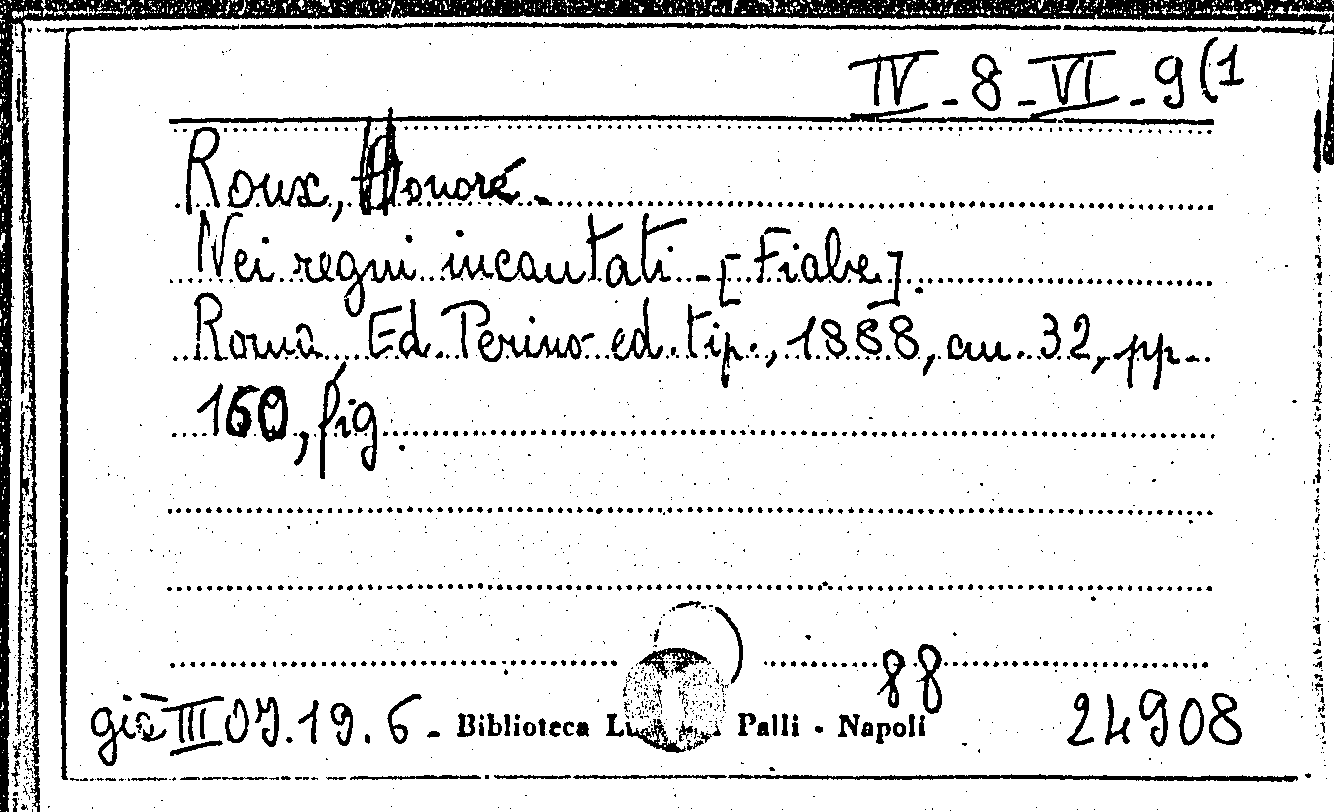 IV - 8 - VI - 9 (1
Roux, Honoré -
Nei regni incantati - [Fiabe].
Roma, Ed. Perino ed. tip., 1888, an. 32, pp.
160, fig.
88
già III 07.19.6 - Biblioteca Palli - Napoli 24908